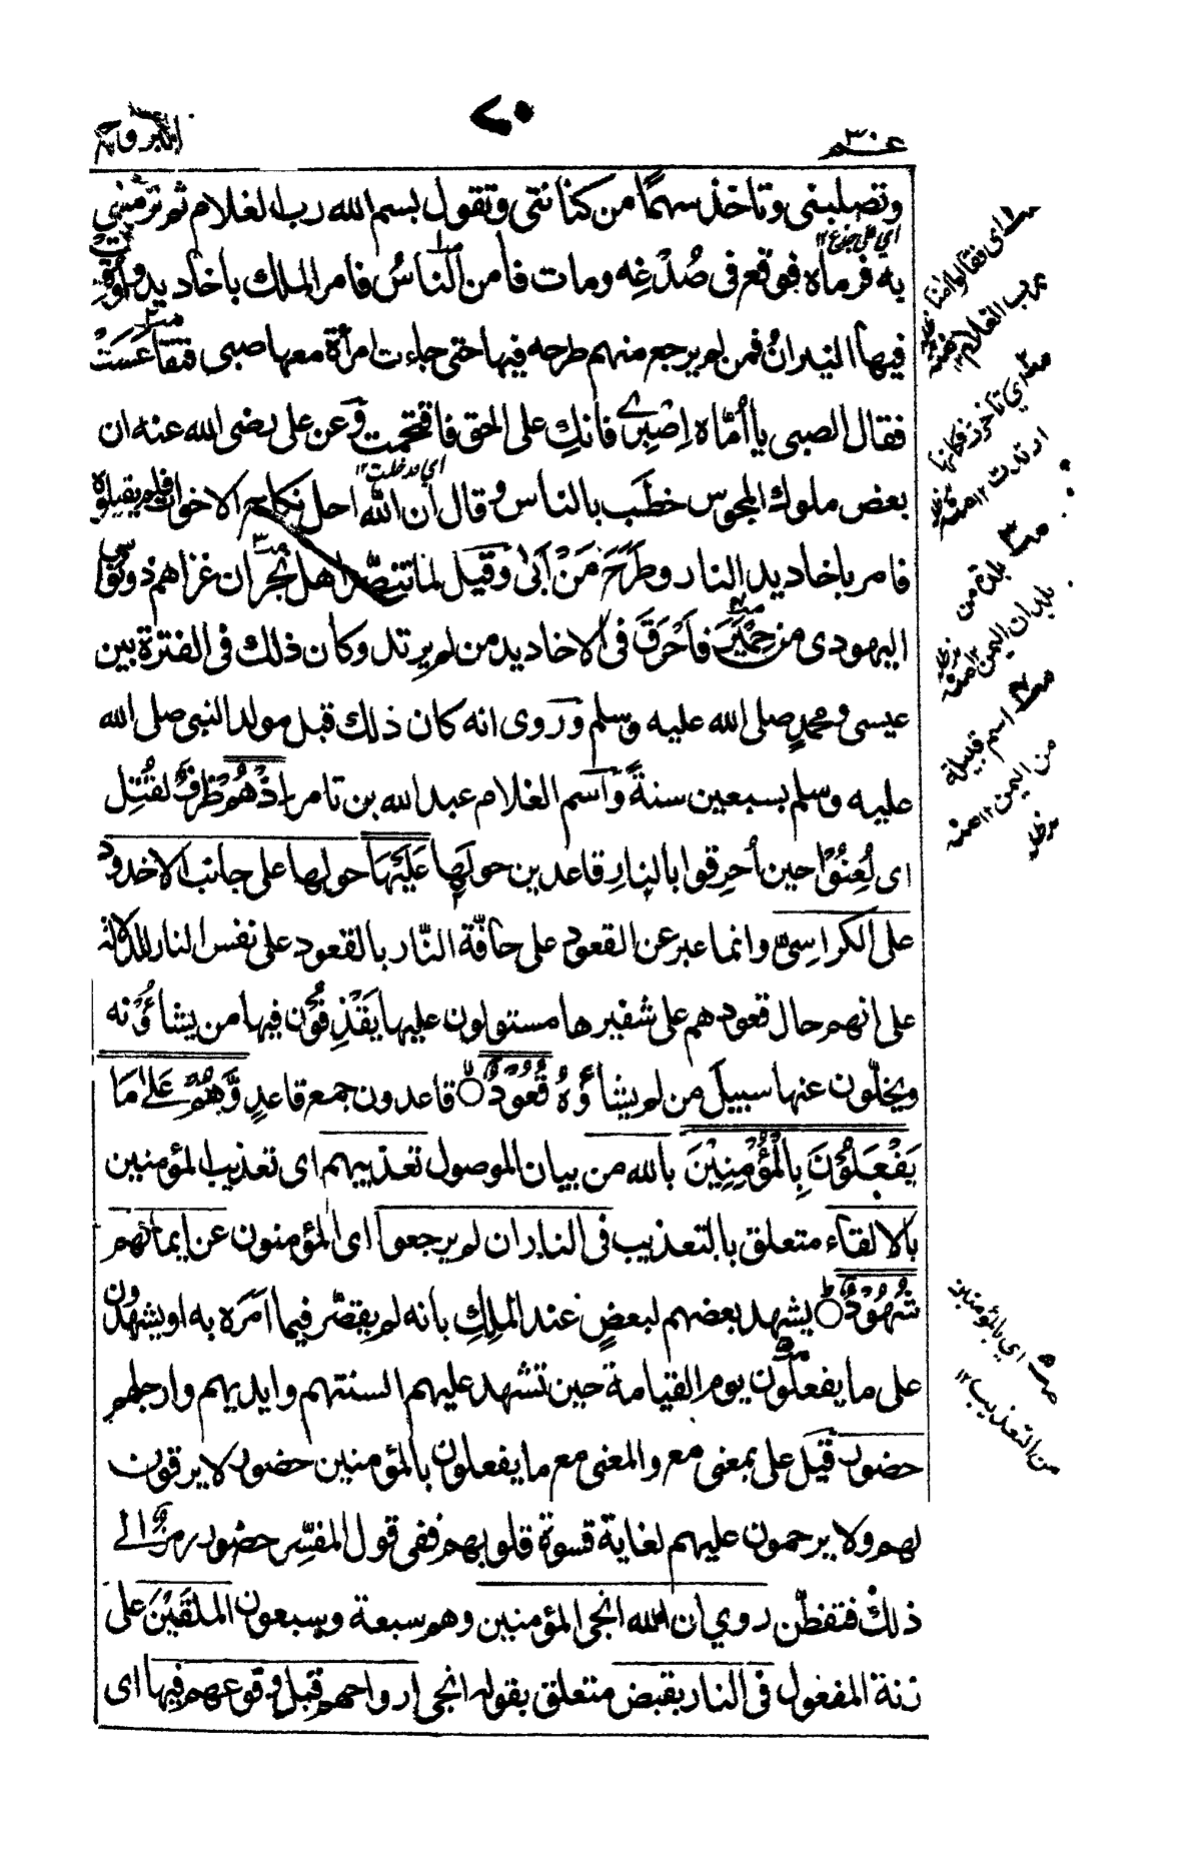 عـــم ٣٠
٧٠
البروج
وتصلبنى وتاخذ سهمًا من كنانتى وتقول بسم الله رب الغلام ثم ترمينى
اي على جذع ١٢
به فرماه فوقع فى صُدْغِه ومات فأمن الناسُ فامر الملك باخاديد واُوقدت
فيها النيرانُ فمن لم يرجع منهم طرحه فيها حتى جاءت امرأة معها صبى فتقاعَسَتْ
فقال الصبى يا اُمّاه اِصْبِرِى فانكِ على الحق فاقتحمت وَعن على رضى الله عنه ان
اي دخلت ١٢
بعض ملوك المجوس خطَب بالناس وقال ان الله احل نكاح الاخوات فلم يقبلوه
فامر باخاديد النار وطَرَحَ مَنْ اَبىٰ وَقيل لما تنصَّر اهل نجران غزاهم ذونواس
اليهودى من حِمْيَر فاَحْرَقَ فى الاخاديد من لم يرتد وكان ذلك فى الفترة بين
عيسى ومحمدٍ صلى الله عليه وسلم وَروى انه كان ذلك قبل مولد النبى صلى الله
عليه وسلم بسبعين سنةً وَاسم الغلام عبد الله بن تامر اِذْ هُمْ ظرفٌ لقُتِل
اى لُعِنُوْا حين اُحرِقوا بالنارِ قاعدين حولَها عَلَيْهَا حولها على جانب الاخدود
على الكراسِىّ وانما عبر عن القعود على حافّة النّار بالقعود على نفس النار للدلالة
على انهم حال قعودهم على شفيرها مستولون عليها يَقْذِفُوْن فيها من يشاؤُنه
ويخلّون عنها سبيلَ من لم يشاؤُهُ قُعُوْدٌ قاعدون جمع قاعدٍ وَّهُمْ عَلىٰ مَا
يَفْعَلُوْنَ بِالْمُؤْمِنِيْنَ بالله من بيان الموصول تعذيبهم اى تعذيب المؤمنين
بالالقاء متعلق بالتعذيب فى النار ان لم يرجعوا اى المؤمنون عن ايمانهم
شُهُوْدٌ يشهد بعضهم لبعضٍ عند الملِكِ بانه لم يقصّر فيما اَمَرَه به او يشهدون
على ما يفعلون يوم القيامة حين تشهد عليهم السنتهم وايديهم وارجلهم
حضور قيل على بمعنى مع والمعنى مع ما يفعلون بالمؤمنين حضور لا يرقون
لهم ولا يرحمون عليهم لغاية قسوة قلوبهم ففى قول المفسِّر حضور رمزٌ الى
ذلك فتفطّن روي ان الله انجى المؤمنين وهم سبعة وسبعون الملقَيْنَ على
زنة المفعول فى النار بقبض متعلق بقوله انجى ارواحهم قبل وقوعهم فيها اى
اى فقالوا امنا
برب الغلام
اي تأخرت فكانها
ارتدت ١٢ منه
بلدة من
بلدان اليمن ١٢ منه
اسم قبيلة
من اليمن ١٢ منه
اي بالمؤمنين
من التعذيب ١٢